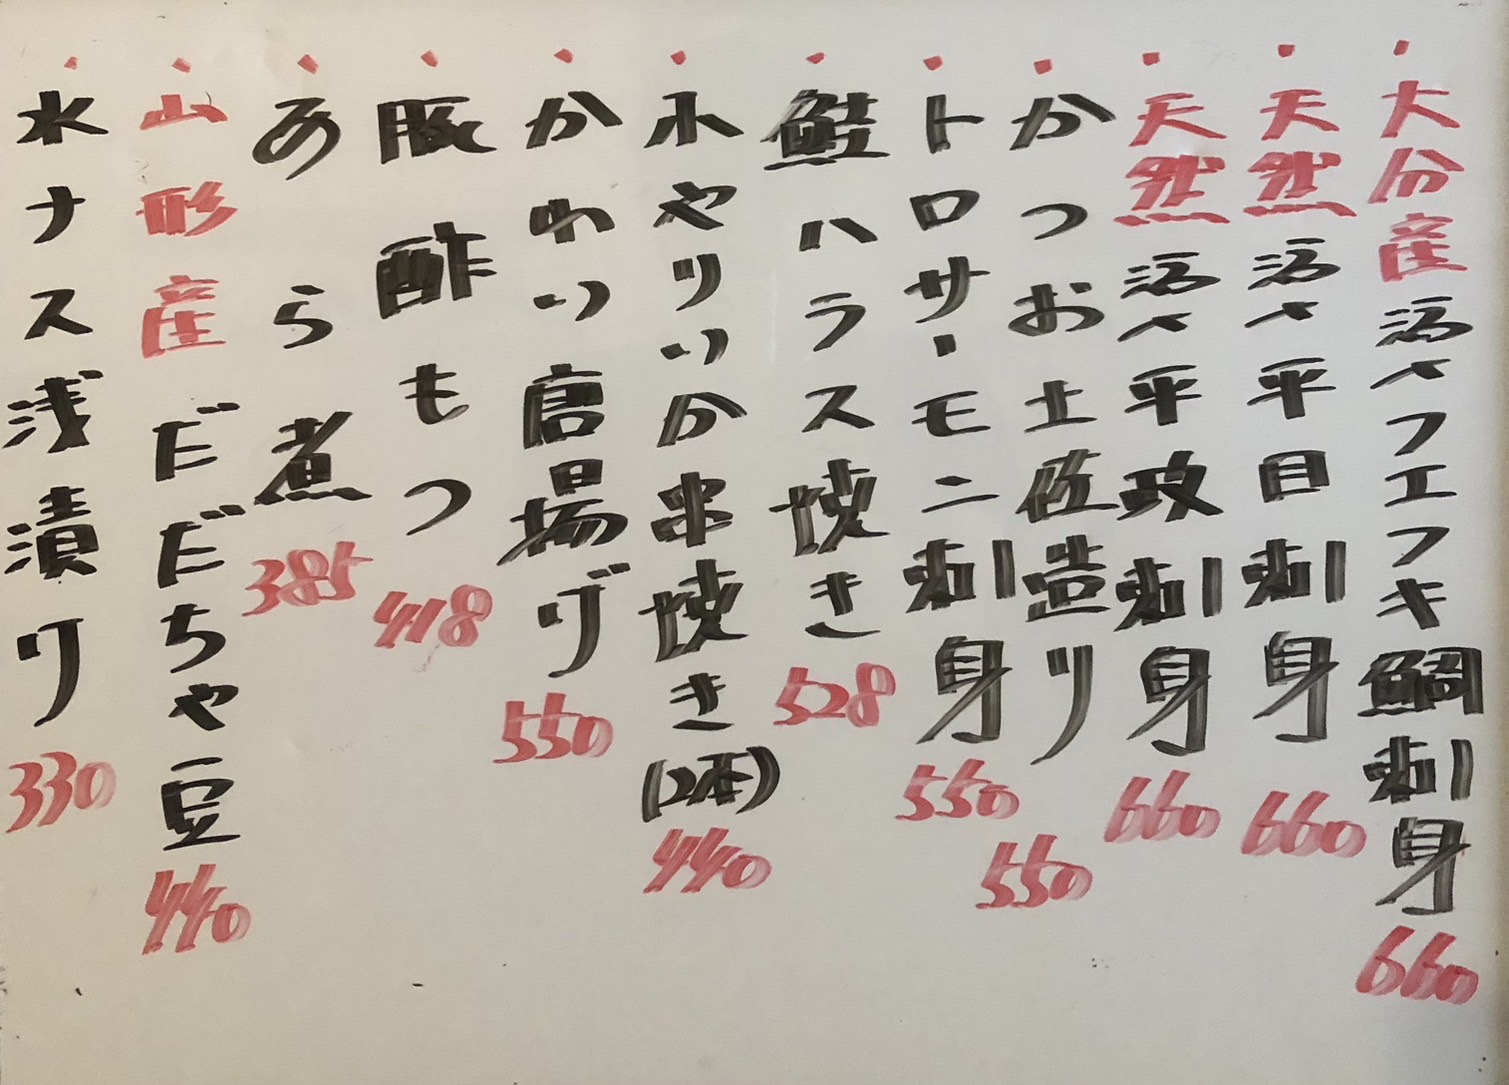 ・大分産活〆フエフキ鯛刺身 660
・天然活〆平目刺身 660
・天然活〆平政刺身 660
・かつお土佐造り 550
・トロサーモン刺身 550
・鮭ハラス焼き 528
・小やりいか串焼き(2本) 440
・かれい唐揚げ 550
・豚酢もつ 418
・あら煮 385
・山形産だだちゃ豆 440
・水ナス浅漬け 330